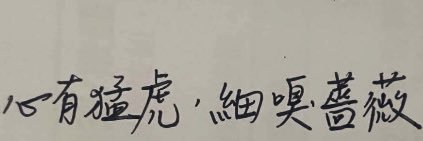 心有猛虎，細嗅薔薇